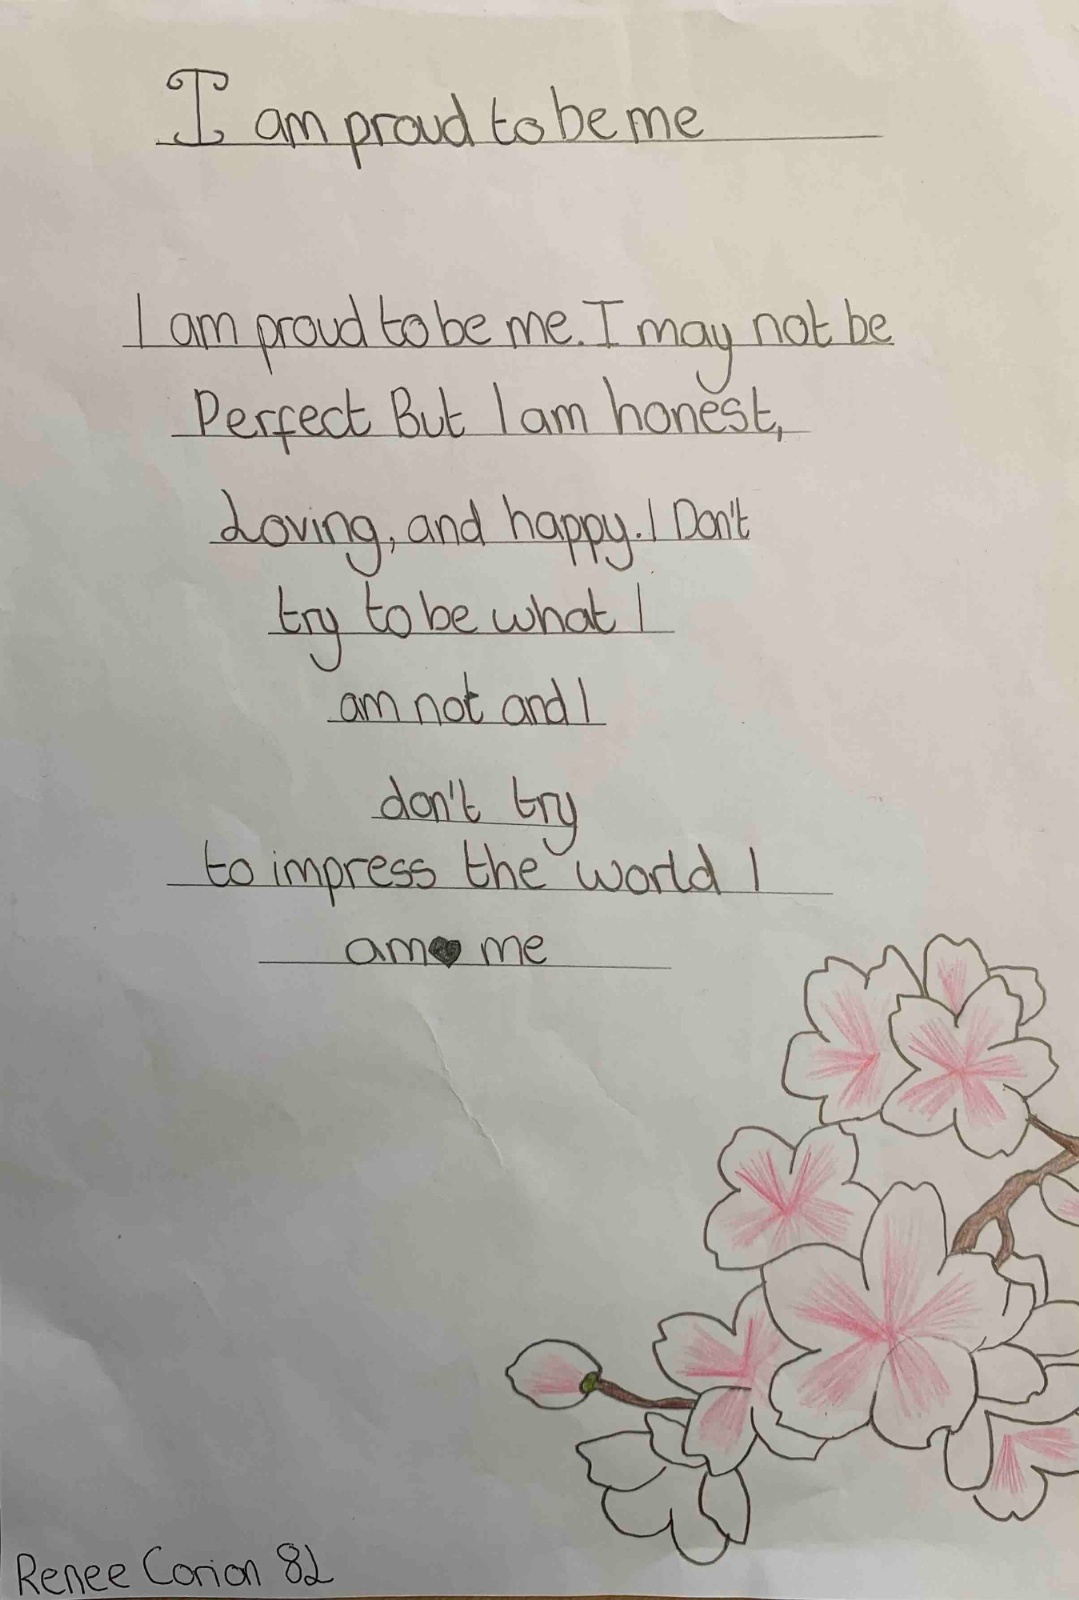 I am proud to be me
I am proud to be me. I may not be
Perfect But I am honest,
Loving, and happy. I Don't
try to be what I
am not and I
don't try
to impress the world I
am me
Renee Corion 82